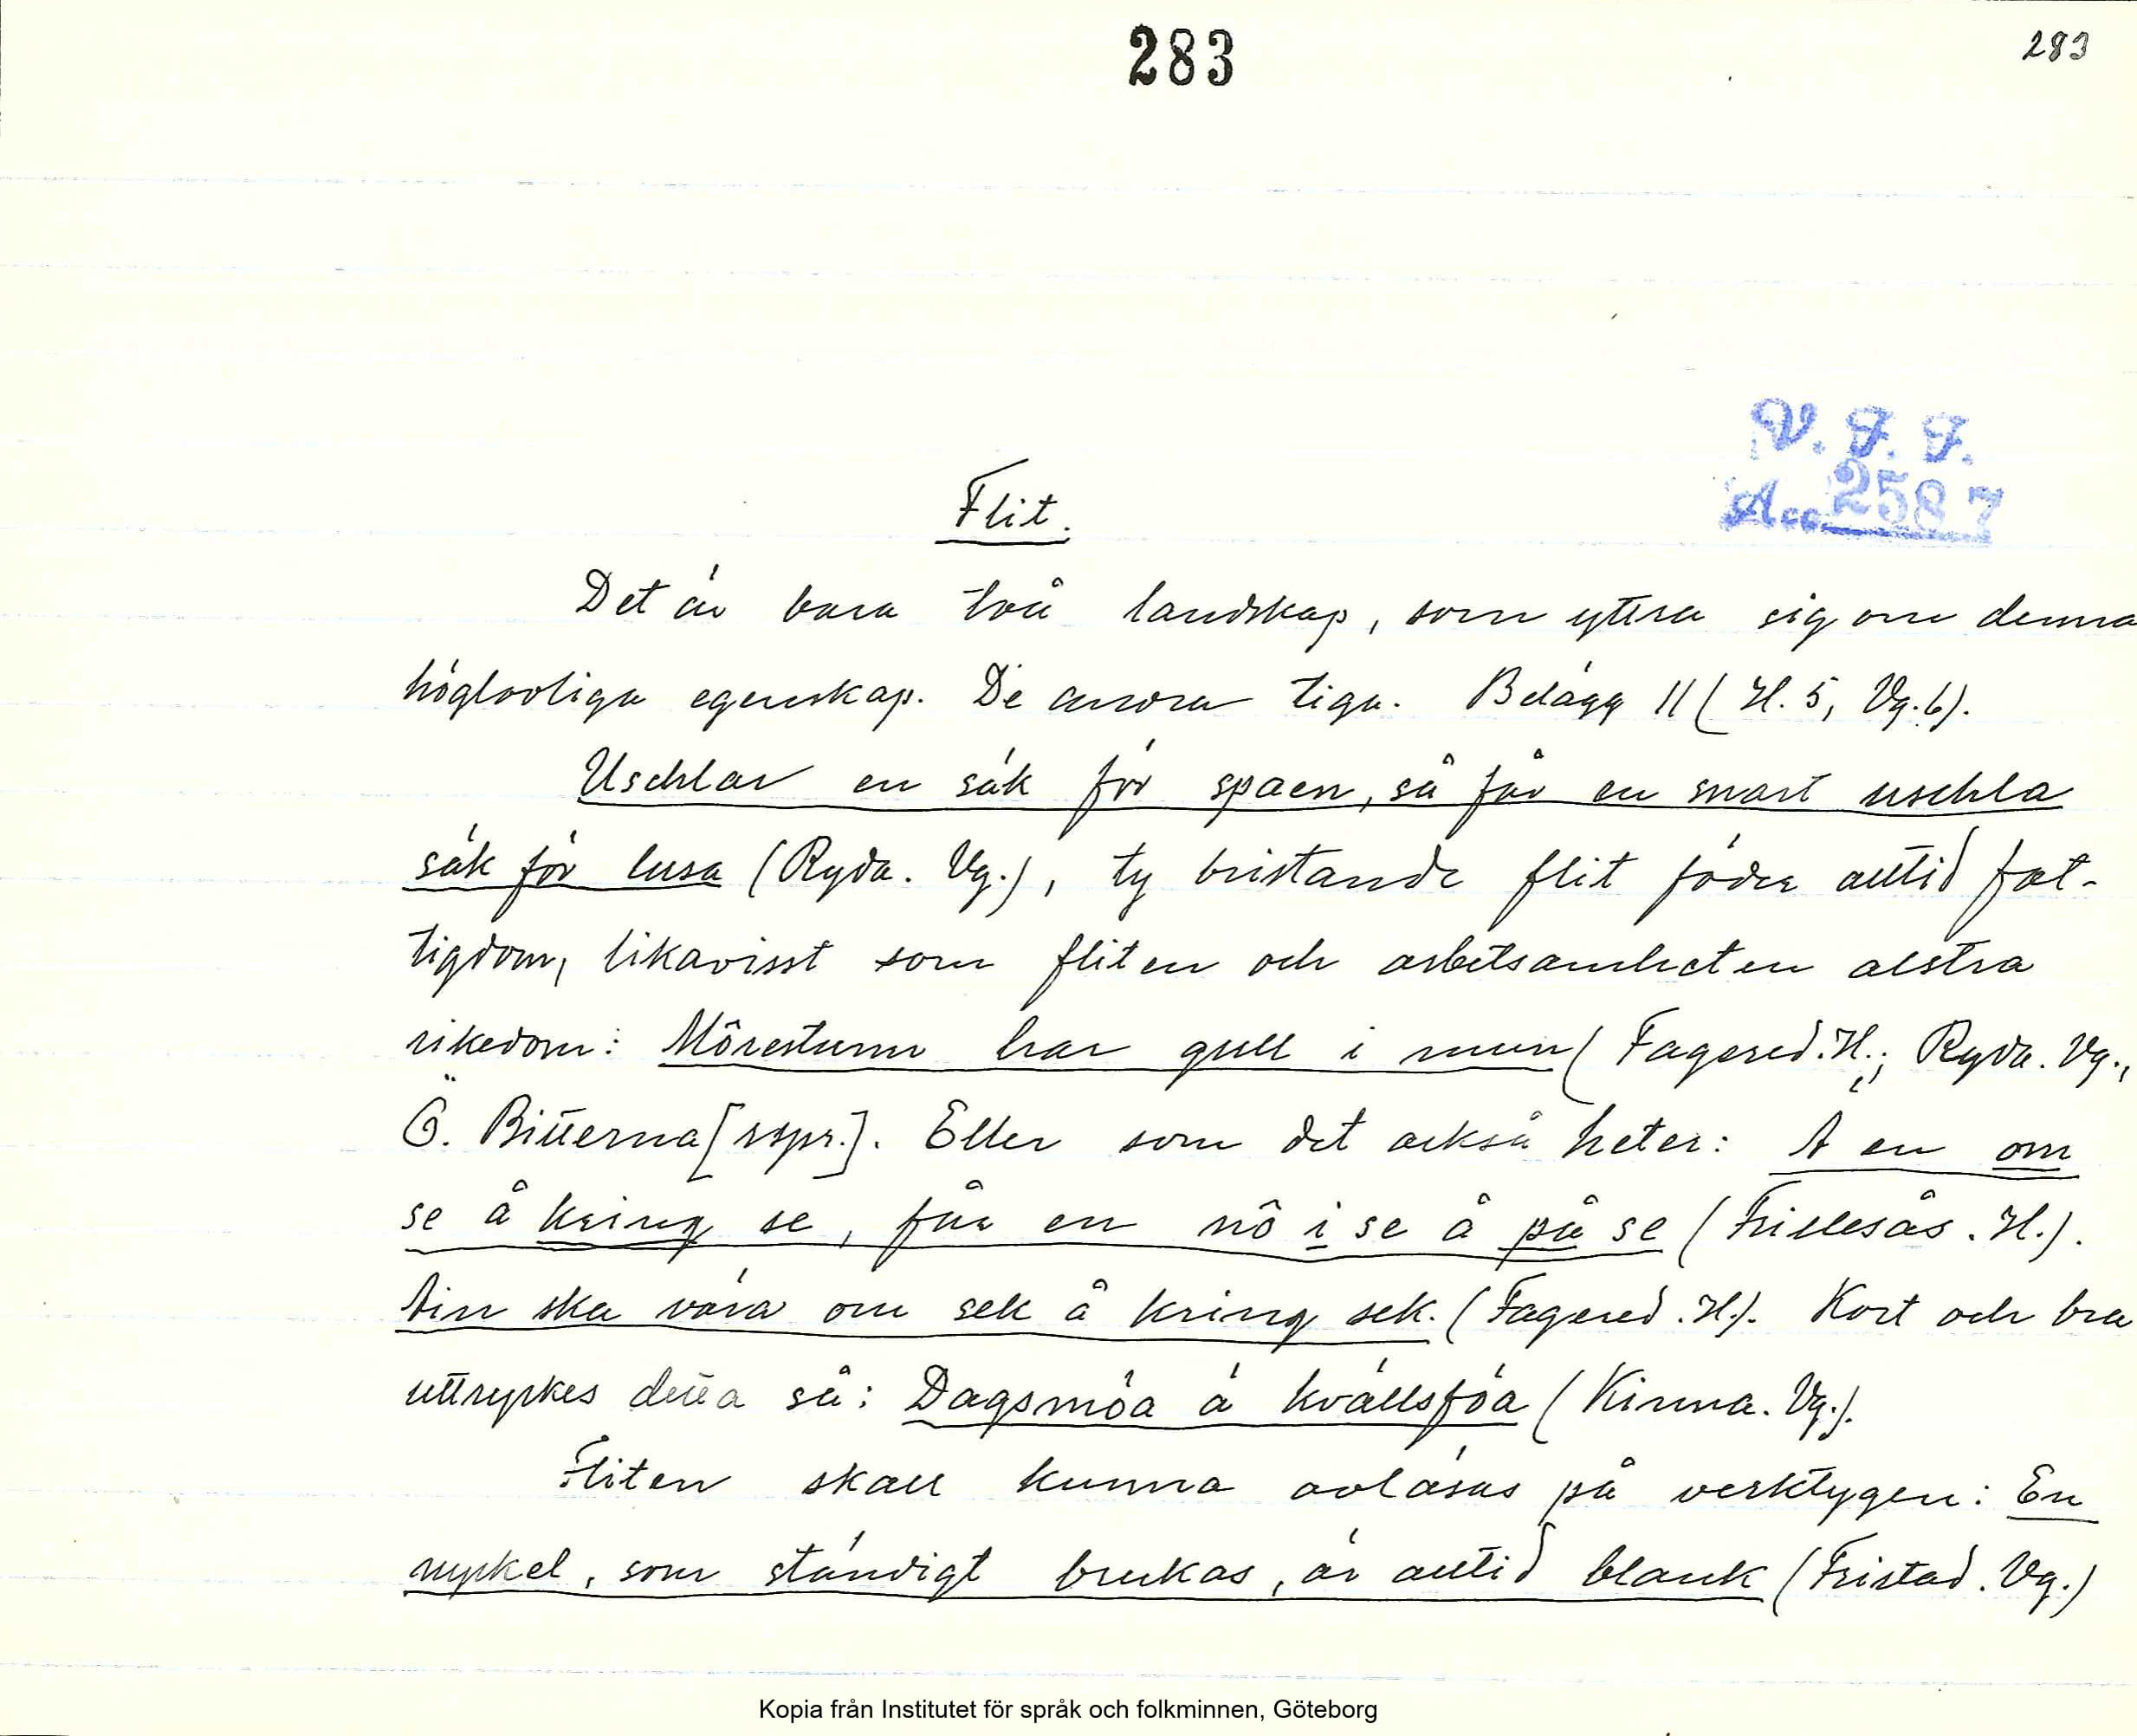 283
283
V. F. F.
Acc. 2587
Flit.
Det är bara två landskap, som yttra sig om denna
höglovliga egenskap. De andra tiga. Belägg 11 (H. 5, Vg. 6).
Uschlar en säk för spaen, så får en snart uschla
säk för lusa (Ryda. Vg.), ty bristande flit föder alltid fat-
tigdom, likavisst som fliten och arbetsamheten alstra
rikedom: Môrestunn har gull i mun (Fagered. H.; Ryda. Vg.,
Ö. Bitterna [rspr.]. Eller som det också heter: A en om
se å kring se, får en nô i se å på se (Frillesås. H.).
Ain ska vära om sek å kring sek. (Fagered. H.). Kort och bra
uttryckes detta så: Dagsmöa ä kvällsföa (Kinna. Vg.).
Fliten skall kunna avläsas på verktygen: En
nyckel, som ständigt brukas, är alltid blank (Fristad. Vg.)
Kopia från Institutet för språk och folkminnen, Göteborg